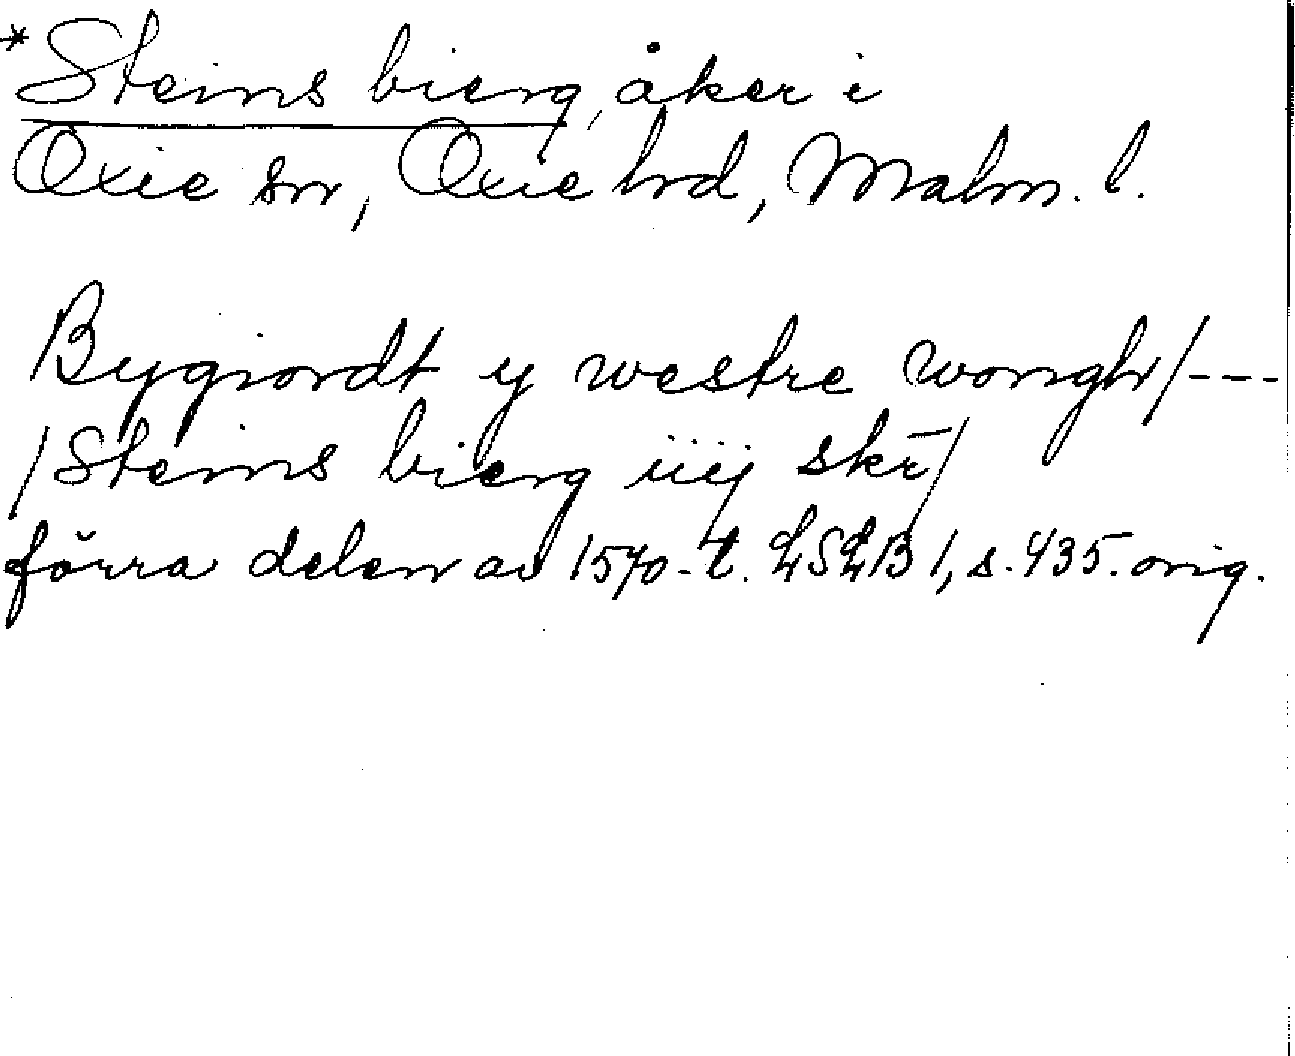 *Steins bierg, åker i
Oxie sn, Oxie hrd, Malm. l.
Bygiordt y westre wongh/---
/Steins bierg iiij skr̄/
förra delen av 1570-t. LSLB 1, s. 435. orig.